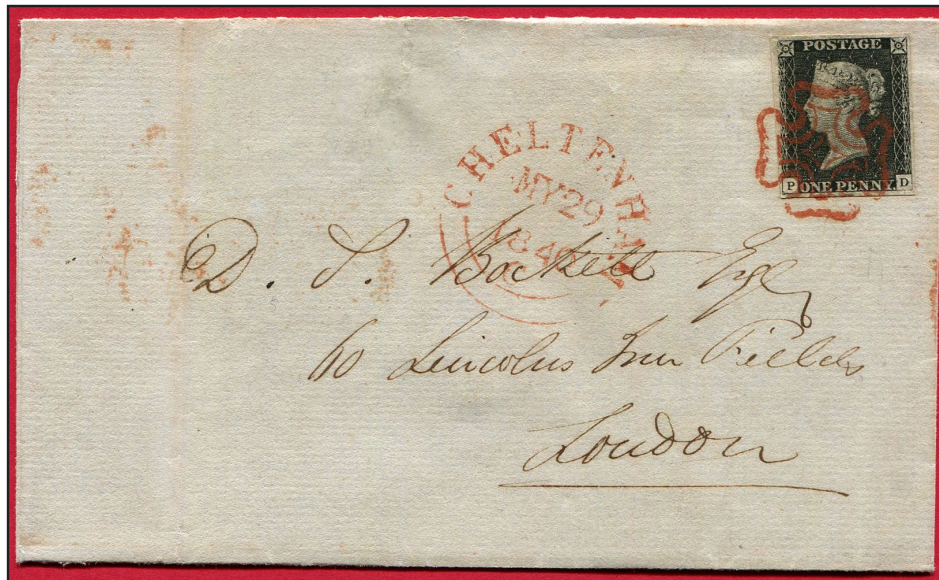 POSTAGE
P ONE PENNY D
CHELTENHAM
MY 29
1840
D. S. Bockett Esqr
60 Lincolns Inn Fields
London